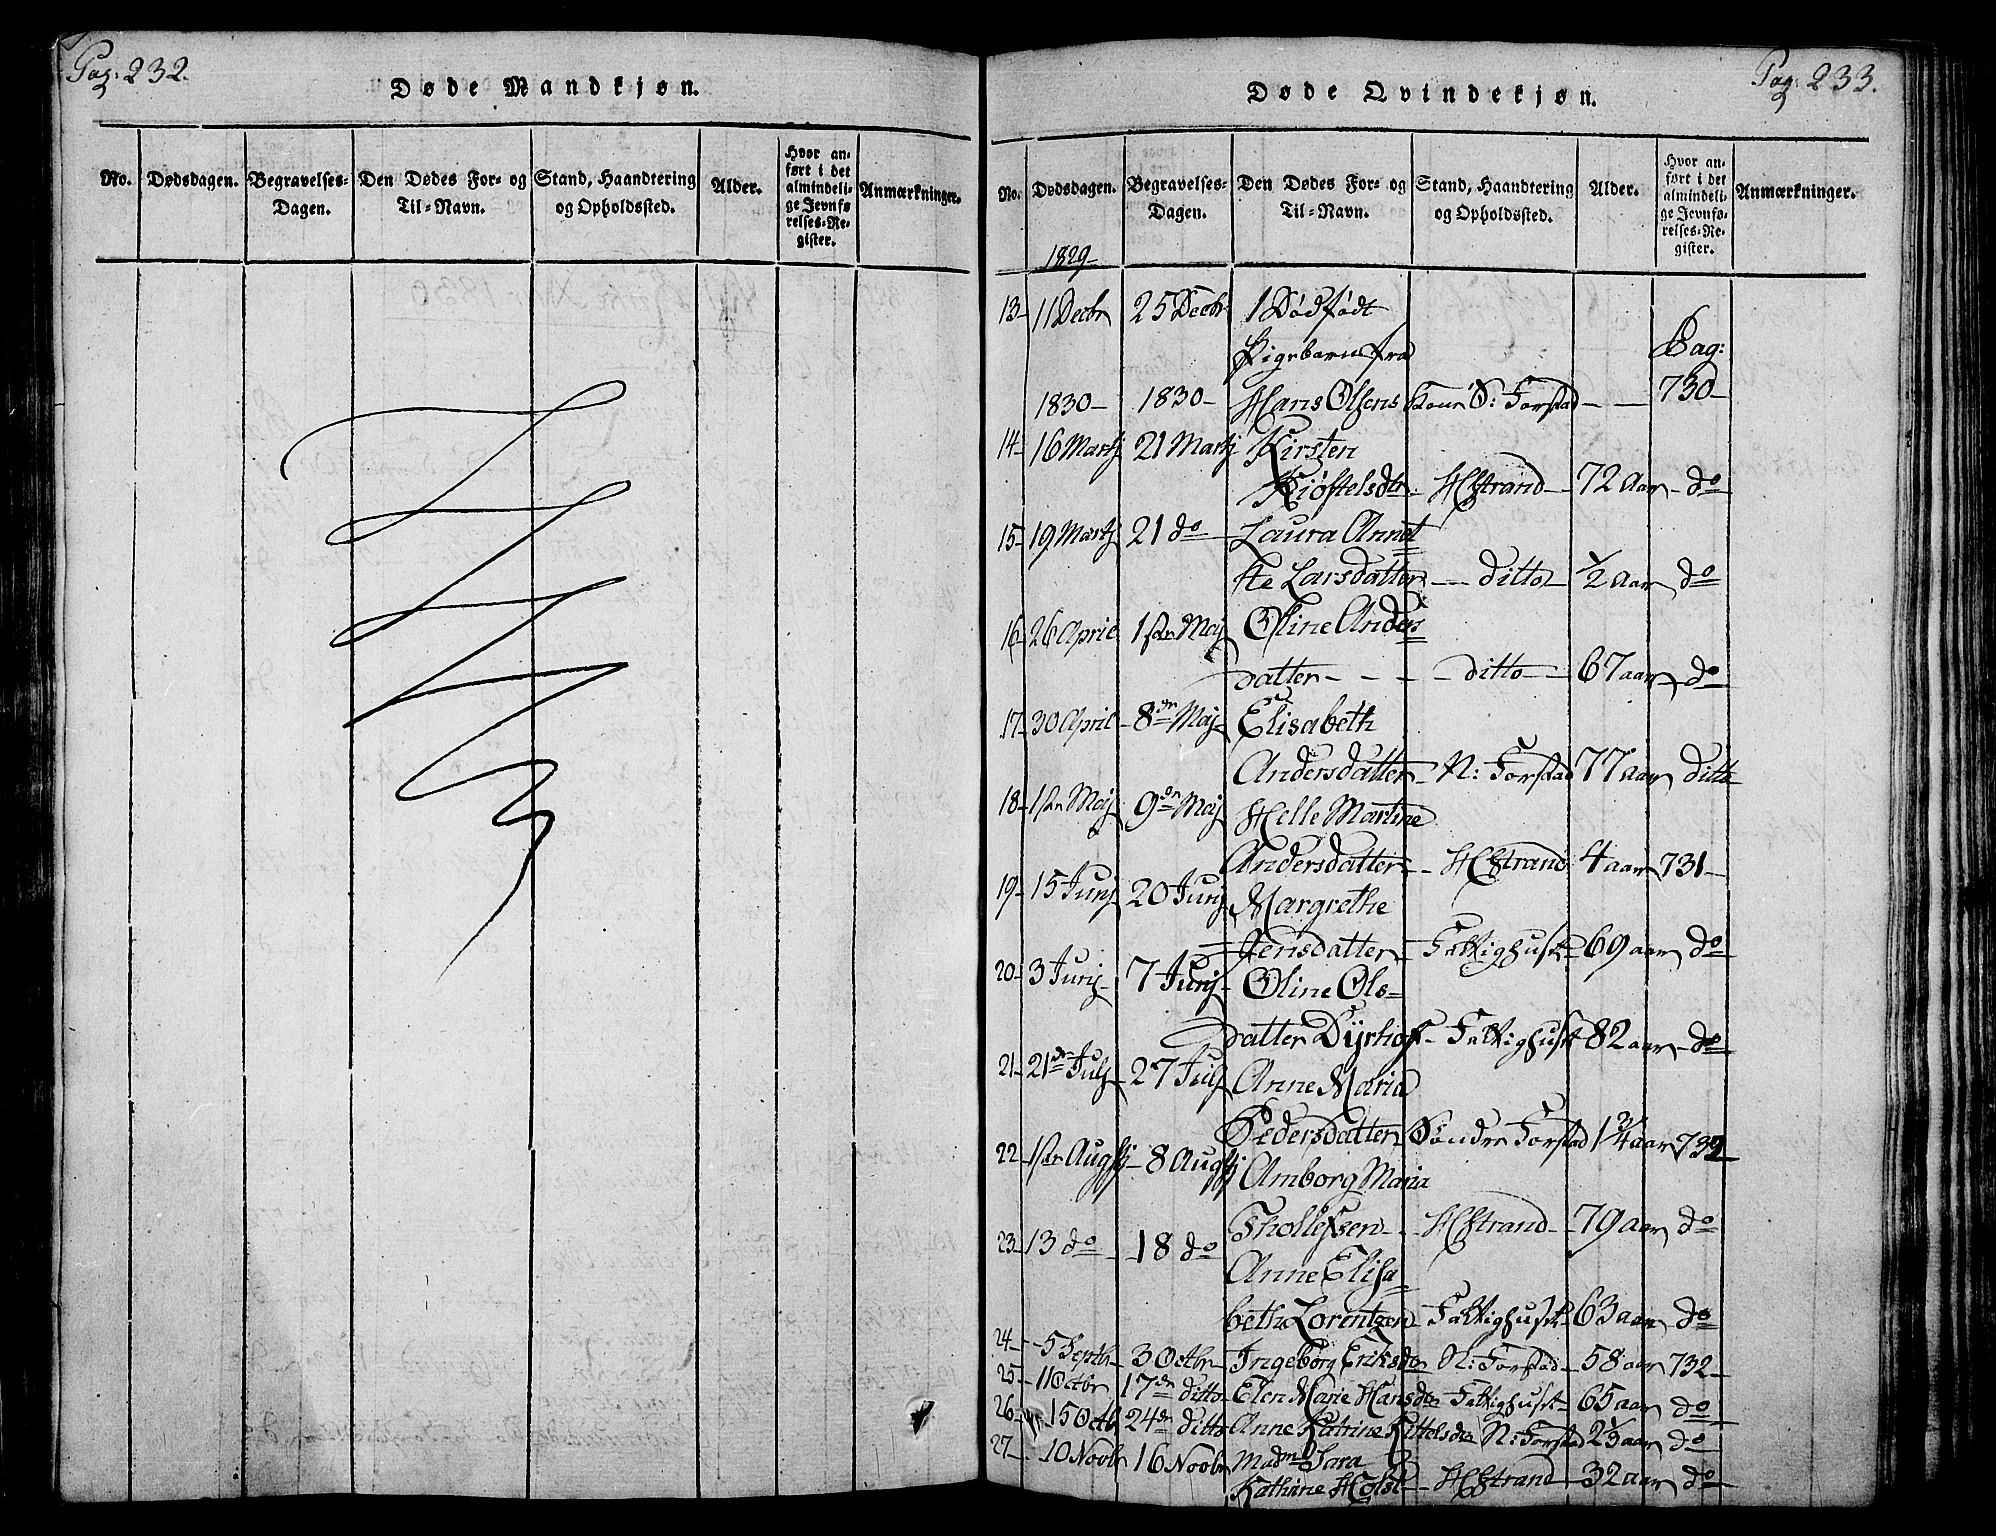 Pag: 232.
Døde Mandkjøn.
No. Dødsdagen. Begravelses-Dagen. Den Dødes For- og Til-Navn. Stand, Haandtering og Opholdssted. Alder. Hvor anført i det almindelige Jevnførelses-Register. Anmærkninger.
Pag: 233.
Døde Qvindekjøn.
No. Dødsdagen. Begravelses-Dagen. Den Dødes For- og Til-Navn. Stand, Haandtering og Opholdssted. Alder. Hvor anført i det almindelige Jevnførelses-Register. Anmærkninger.
1829
13 11 Decbr 25 Decbr 1 Dødfødt
Pigebarn fra Pag:
1830 1830 Hans Olsens Kone S: Forstad 730
14 16 Martj 21 Martj Kirsten
Kjøstelsdtr HStrand 72 Aar do
15 19 Martj 21 do Laura Annet
te Larsdatter ditto 1/2 Aar do
16 26 April 1ste Maj Oline Anders
datter ditto 67 aar do
17 30 April 8de Maj Elisabeth
Andersdatter N: Forstad 77 aar ditto
18 1ste Maj 9de Maj Helle Martine
Andersdatter HStrand 4 aar 731
19 15 Junj 20 Junj Margrethe
Jensdatter Fattighuset 69 aar do
20 3 Junj 7 Junj Oline Ols-
datter Dyrhof Fattighuset 82 aar do
21 21de Julj 27 Julj Anne Maria
Pedersdatter Søndre Forstad 1 3/4 aar 732
22 1ste Augstj 8 Augstj Amborg Maria
Thollefsen HStrand 79 aar do
23 13 do 18 do Anne Elisa-
beth Lorentzen Fattighuset 63 aar do
24 5 Septbr 3 Octbr Ingebörg Eriksdr N: Forstad 58 aar 732
25 11 Octbr 17de ditto Elen Marie Hansdr Fattighuset 65 aar do
26 15 Octb 24de ditto Anne Katrine Kittelsdr N: Forstad 2 1/2 aar do
27 10 Novbr 16 Novbr Madm Sara
Kathrine Holst HStrand 32 aar do